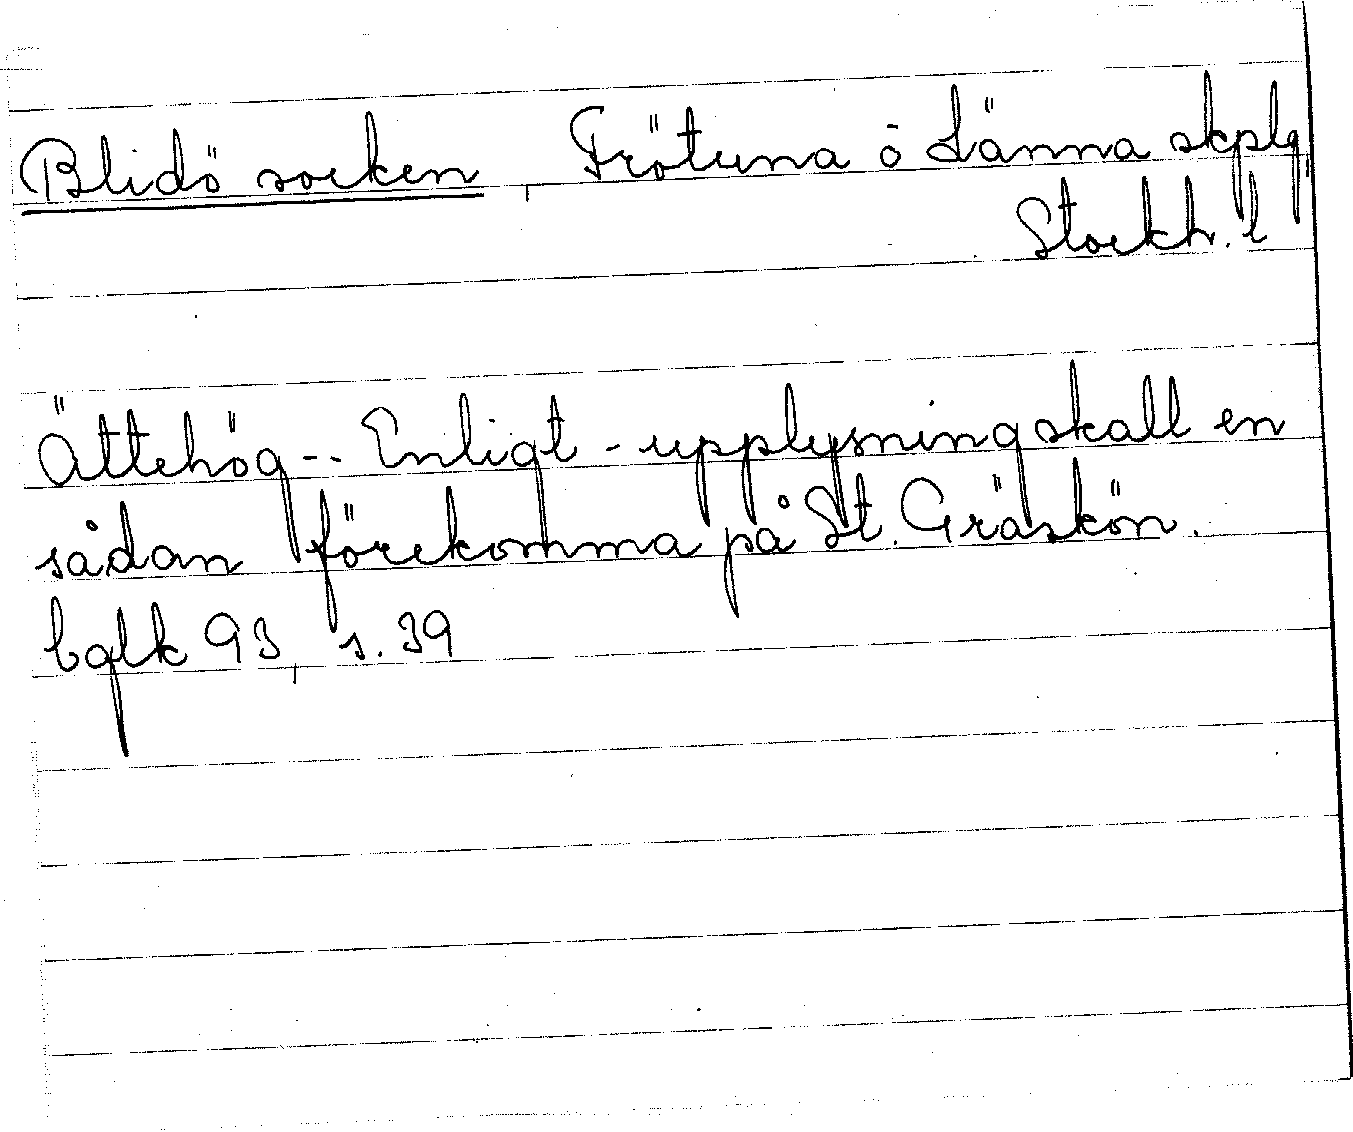 Blidö socken, Frötuna o Länna skplg,
Stockh. l
Ättehög -- Enligt - upplysning skall en
sådan förekomma på St. Gräskön.
bglk 93, s. 39